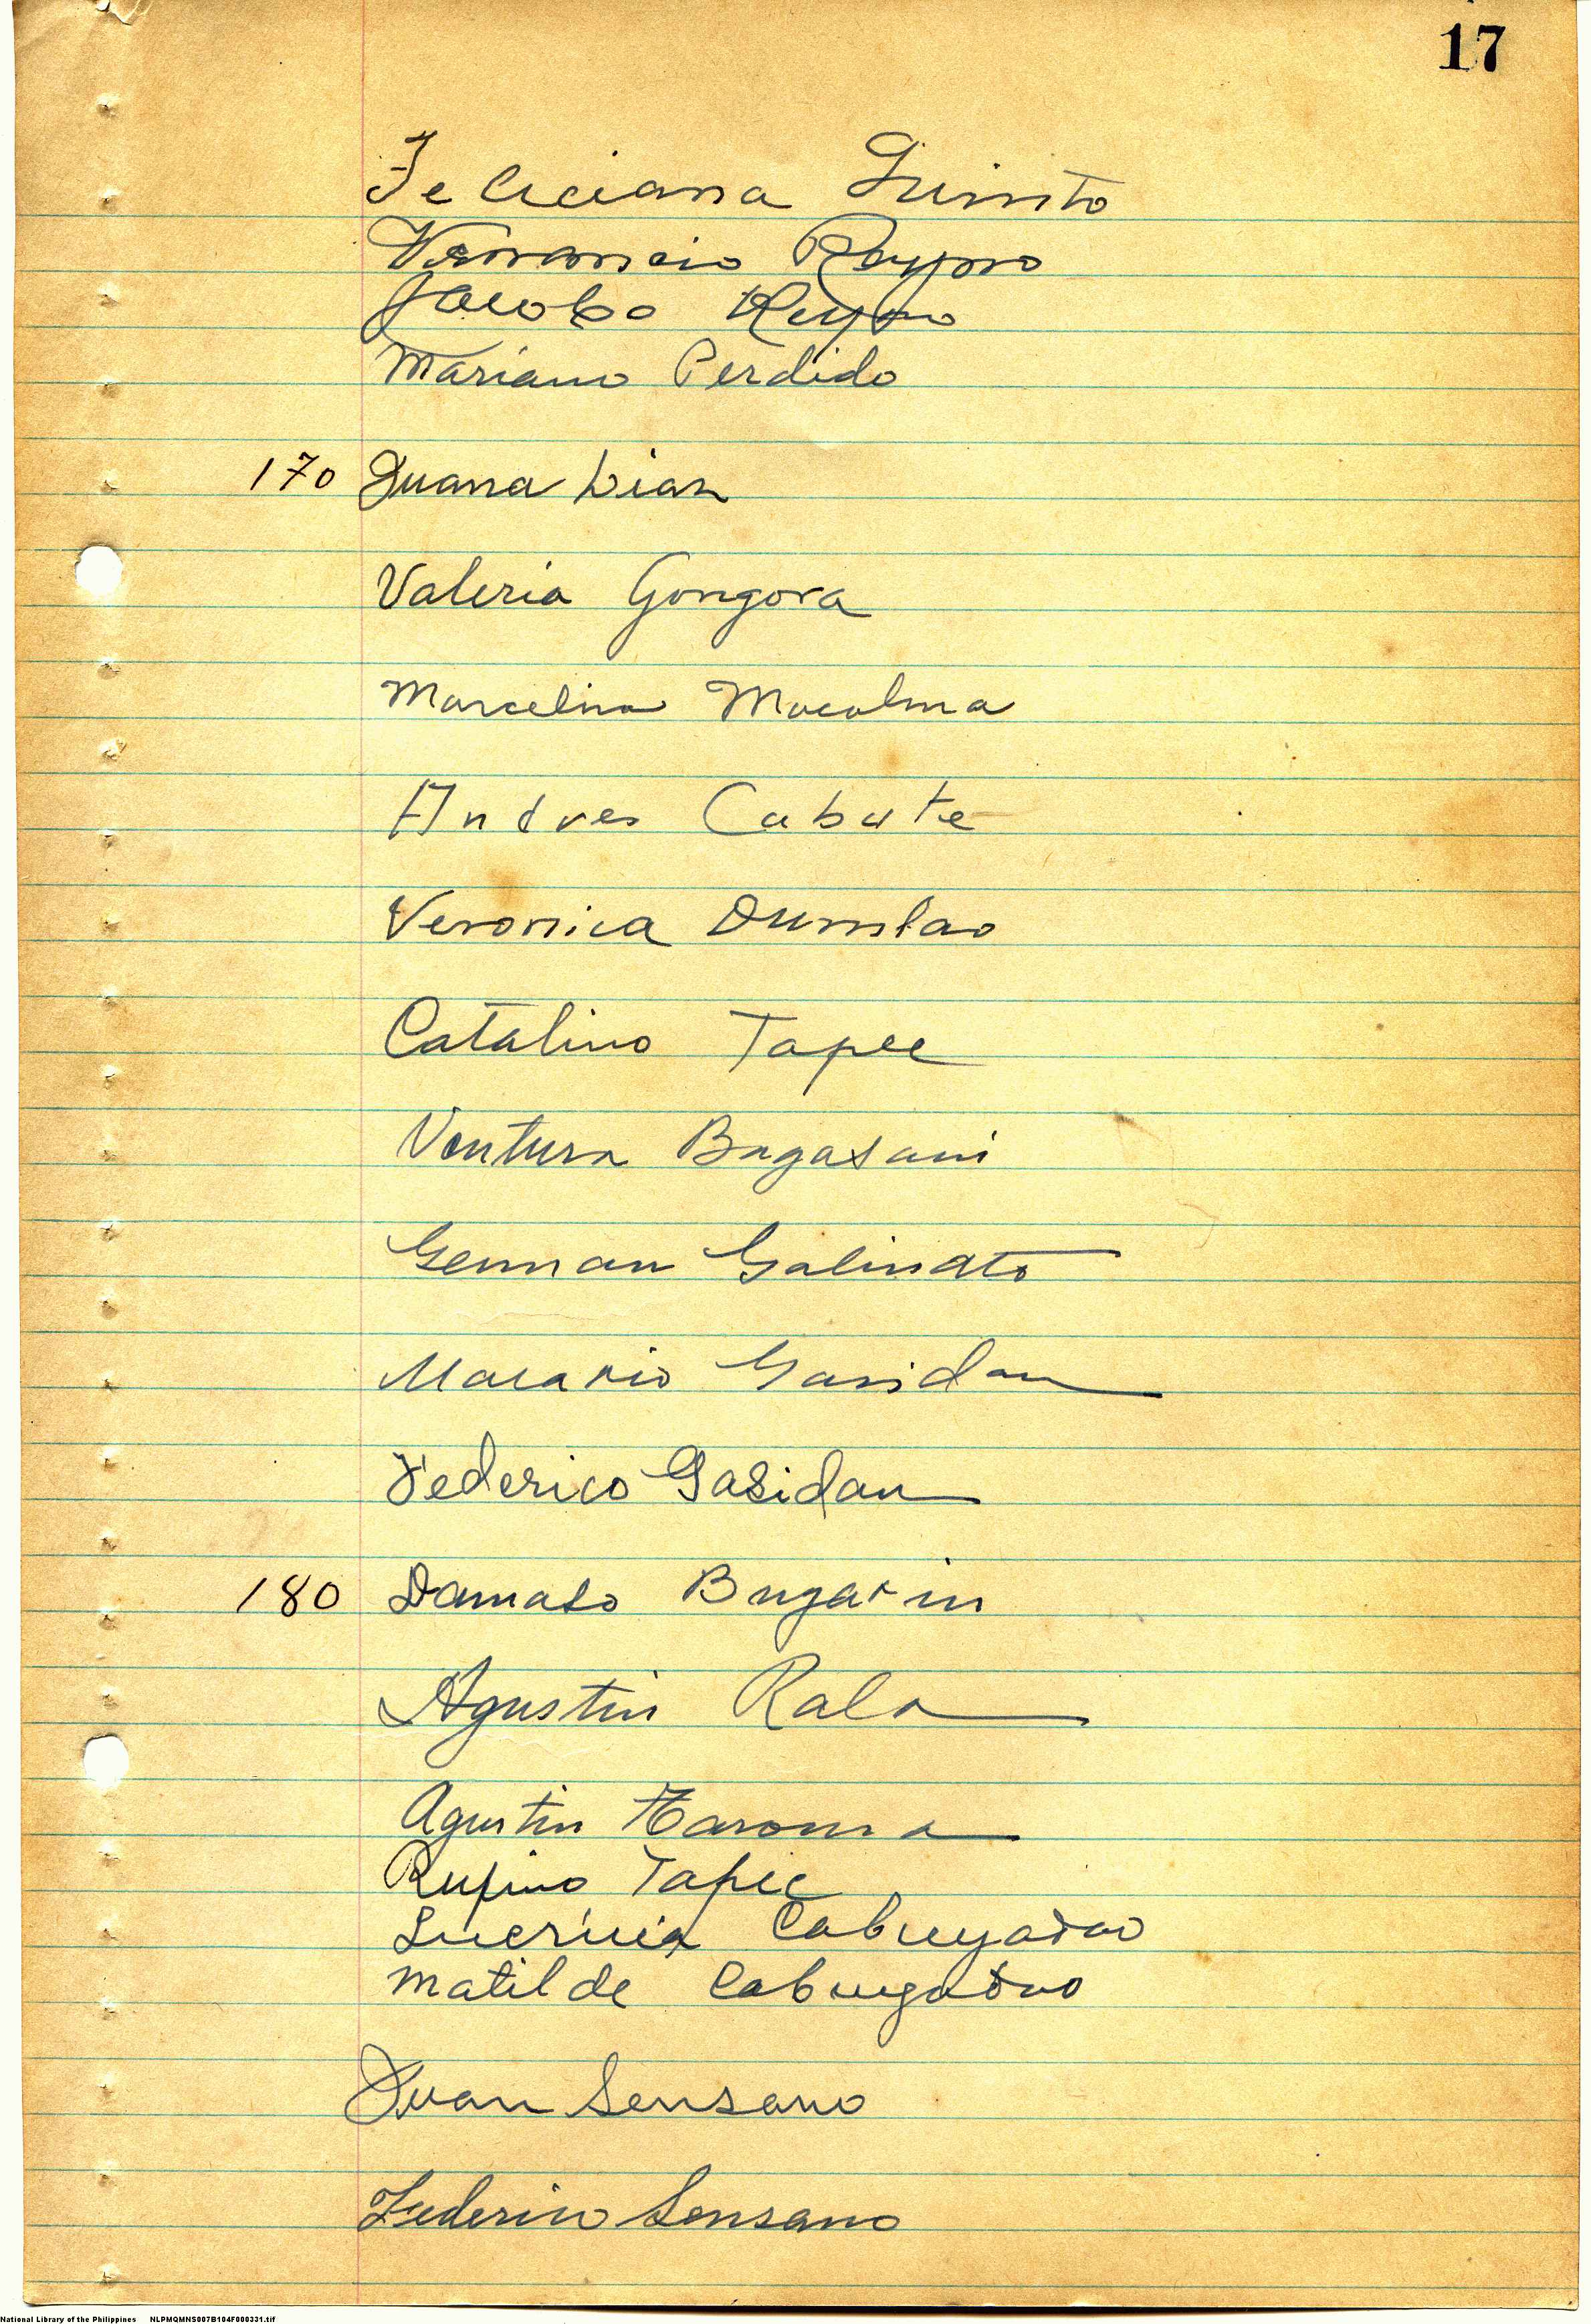 17
Feliciana
Venancio Reyno
Jacobo Reyno
Mariano Perdido
170 Juana Dian
Valeria Gongora
Marcelina Macalma
Andres Cabute
Veronica Dumlao
Catalino Tapec
Ventura Bagasani
German Galinato
Macario Gasidan
Federico Gasidan
180 Damaso Bugarin
Agustin Rala
Agustin
Rufino Tapec
Lucricia Cabuyadao
Matilde Cabugadao
Juan Sensano
Federico Sensano
National Library of the Philippines NLPMQMNS007B104F000331.tif